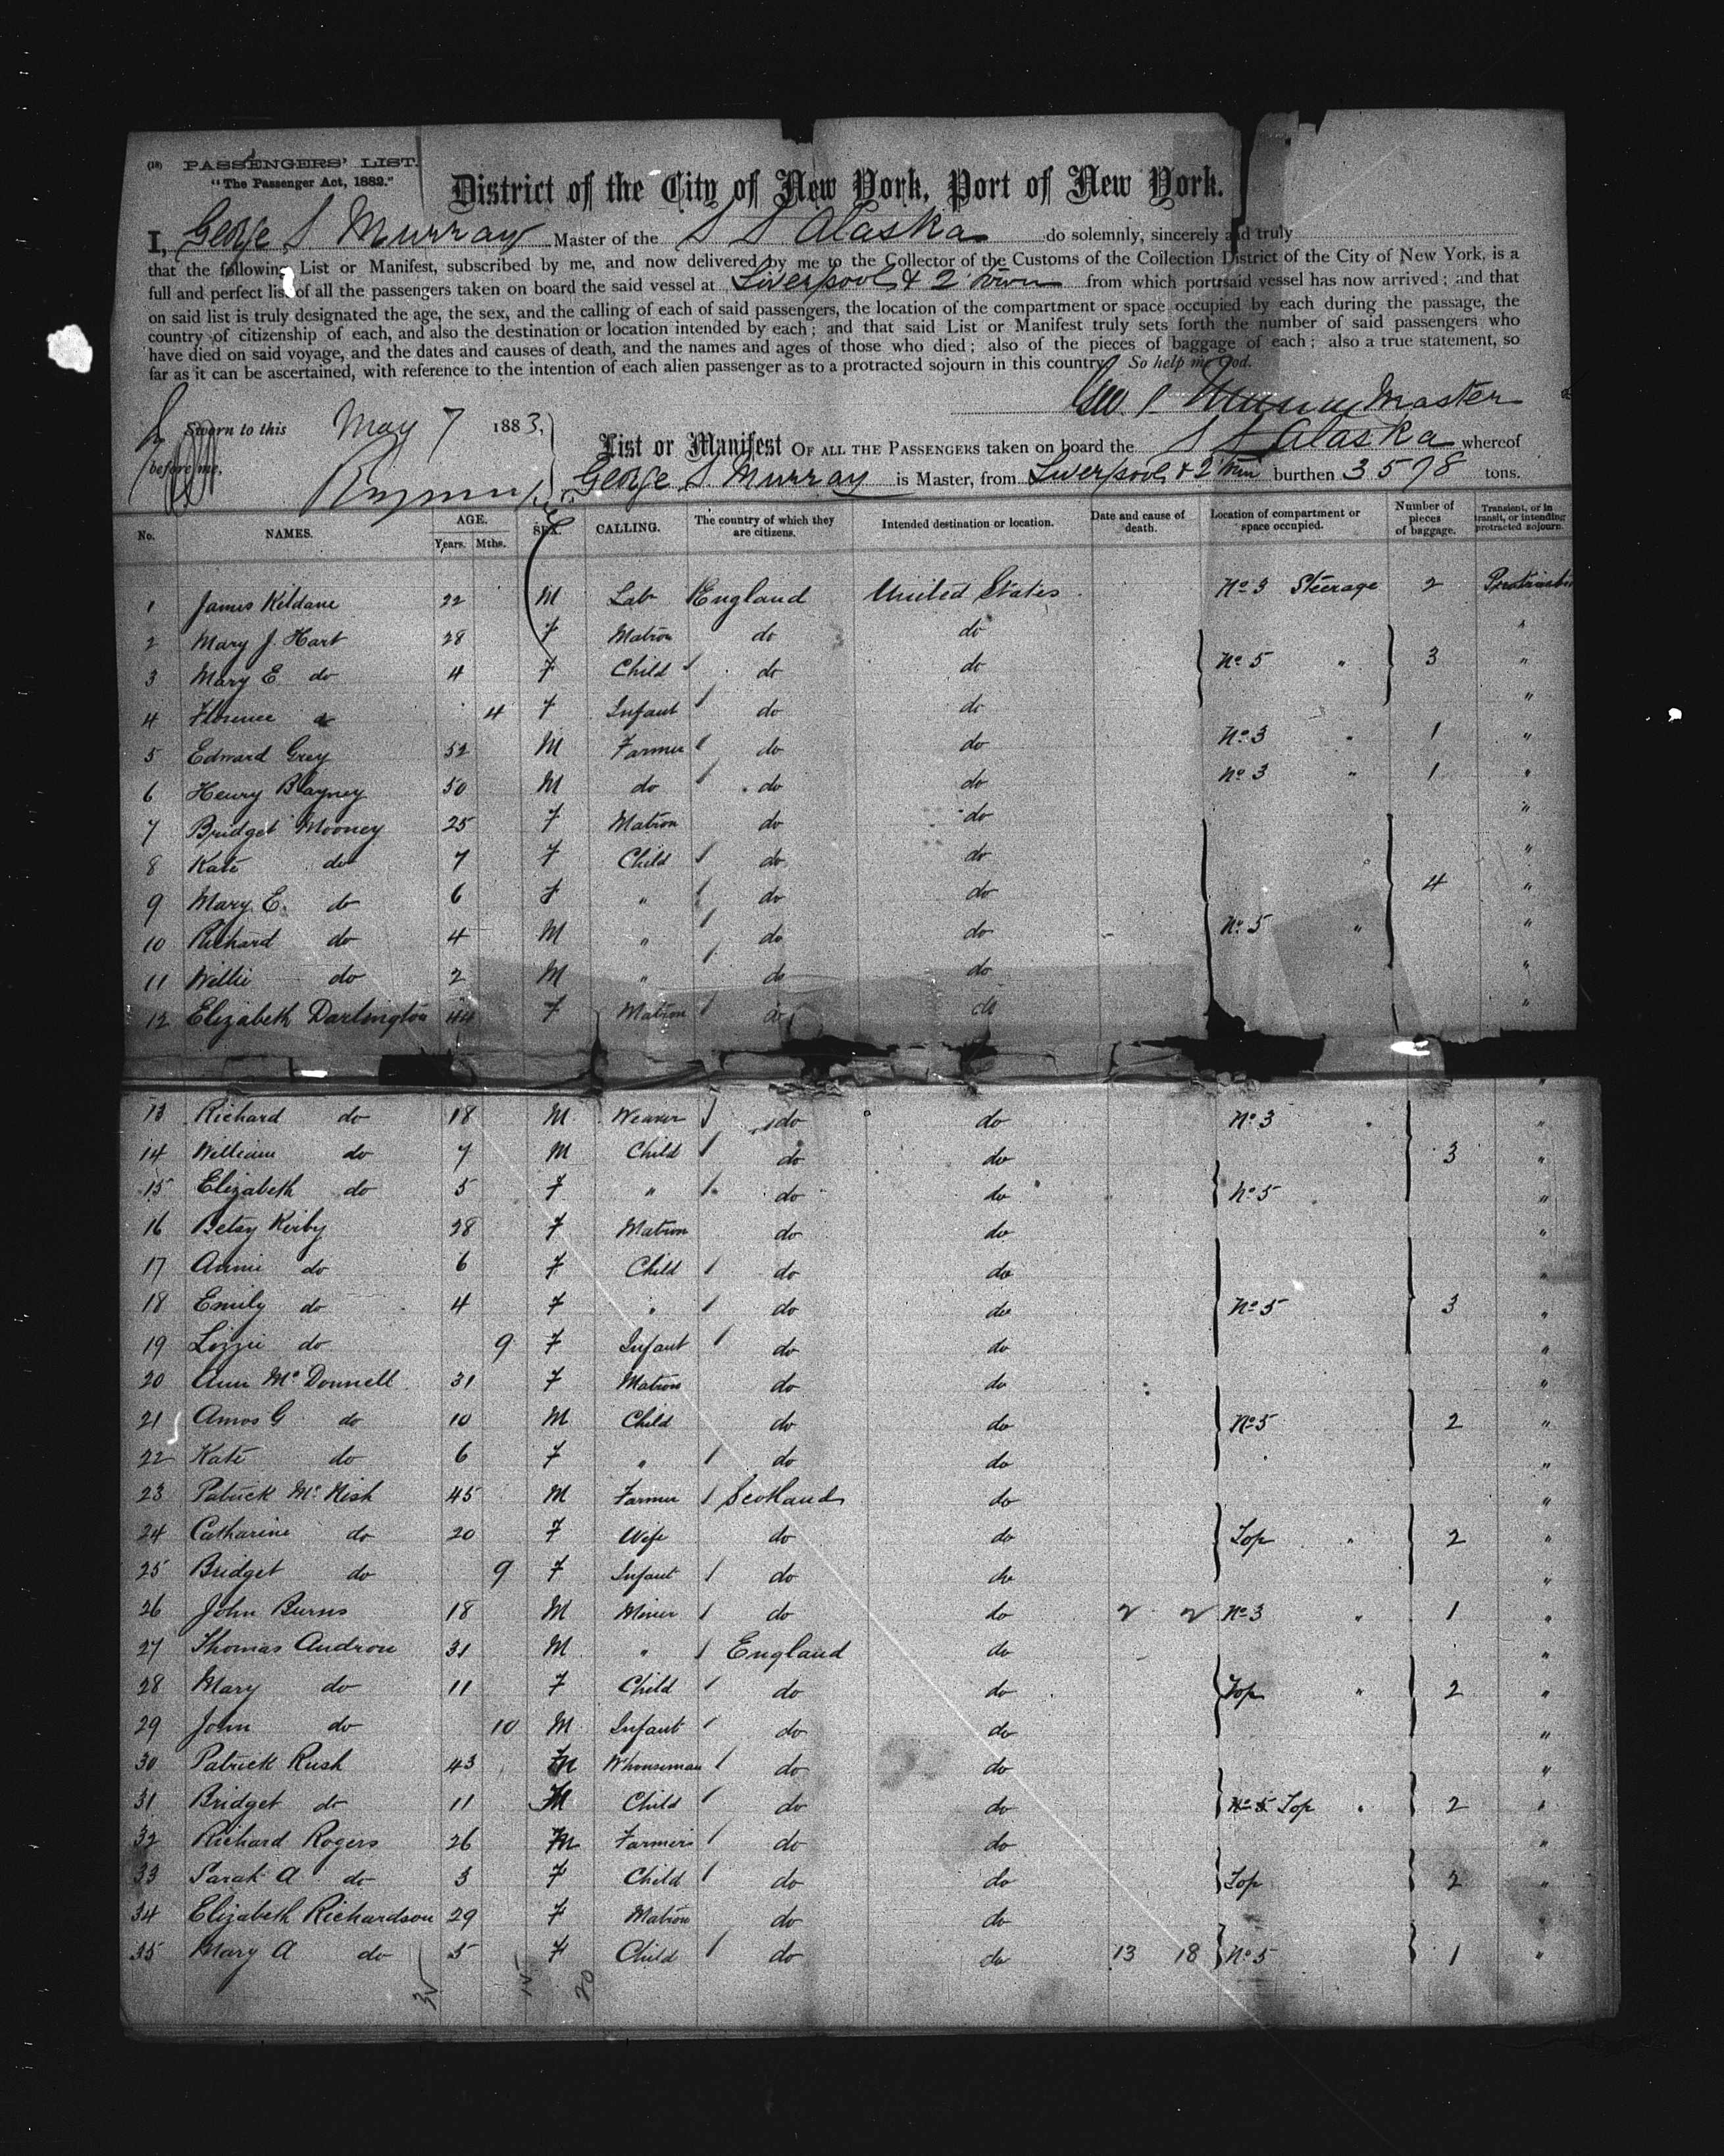 (18) PASSENGERS' LIST.
"The Passenger Act, 1882."
District of the City of New York, Port of New York.
I, George S. Murray Master of the S S Alaska do solemnly, sincerely and truly
that the following List or Manifest, subscribed by me, and now delivered by me to the Collector of the Customs of the Collection District of the City of New York, is a
full and perfect list of all the passengers taken on board the said vessel at Liverpool & 2 town from which port said vessel has now arrived; and that
on said list is truly designated the age, the sex, and the calling of each of said passengers, the location of the compartment or space occupied by each during the passage, the
country of citizenship of each, and also the destination or location intended by each; and that said List or Manifest truly sets forth the number of said passengers who
have died on said voyage, and the dates and causes of death, and the names and ages of those who died; also of the pieces of baggage of each; also a true statement, so
far as it can be ascertained, with reference to the intention of each alien passenger as to a protracted sojourn in this country. So help me God.
Geo. S. Murray Master
Sworn to this May 7 1883,
before me,
List or Manifest OF ALL THE PASSENGERS taken on board the S S Alaska whereof
George S Murray is Master, from Liverpool & 2 town burthen 3578 tons.
No. NAMES. AGE. Years. Mths. SEX. CALLING. The country of which they are citizens. Intended destination or location. Date and cause of death. Location of compartment or space occupied. Number of pieces of baggage. Transient, or in transit, or intending protracted sojourn.
1 James Kildane 22 M Lab England United States No 3 Steerage 2
2 Mary J. Hart 28 F Matron do do "
3 Mary E. do 4 F Child do do No 5 " 3 "
4 Florence do 4 F Infant do do "
5 Edward Grey 52 M Farmer do do No 3 " 1 "
6 Henry Blayney 50 M do do do No 3 " 1 "
7 Bridget Mooney 25 F Matron do do "
8 Kate do 7 F Child do do " "
9 Mary E. do 6 F " do do 4 "
10 Richard do 4 M " do do No 5 " "
11 Willie do 2 M " do do "
12 Elizabeth Darlington 44 F Matron do do "
13 Richard do 18 M Weaver do do No 3 " "
14 William do 7 M Child do do 3 "
15 Elizabeth do 5 F " do do No 5 "
16 Betsy Kirby 28 F Matron do do "
17 Annie do 6 F Child do do "
18 Emily do 4 F " do do No 5 3 "
19 Lizzie do 9 F Infant do do "
20 Ann McDonnell 31 F Matron do do "
21 Amos G do 10 M Child do do No 5 2 "
22 Kate do 6 F " do do "
23 Patrick McNish 45 M Farmer Scotland do "
24 Catharine do 20 F Wife do do Top " 2 "
25 Bridget do 9 F Infant do do "
26 John Burns 18 M Miner do do 2 2 No 3 " 1 "
27 Thomas Androu 31 M " England do "
28 Mary do 11 F Child do do Top " 2 "
29 John do 10 M Infant do do "
30 Patrick Rush 43 M W'houseman do do "
31 Bridget do 11 M Child do do No 5 Top " 2 "
32 Richard Rogers 26 M Farmer do do "
33 Sarah A do 3 F Child do do Top 2 "
34 Elizabeth Richardson 29 F Matron do do "
35 Mary A do 5 F Child do do 13 18 No 5 1 "
20